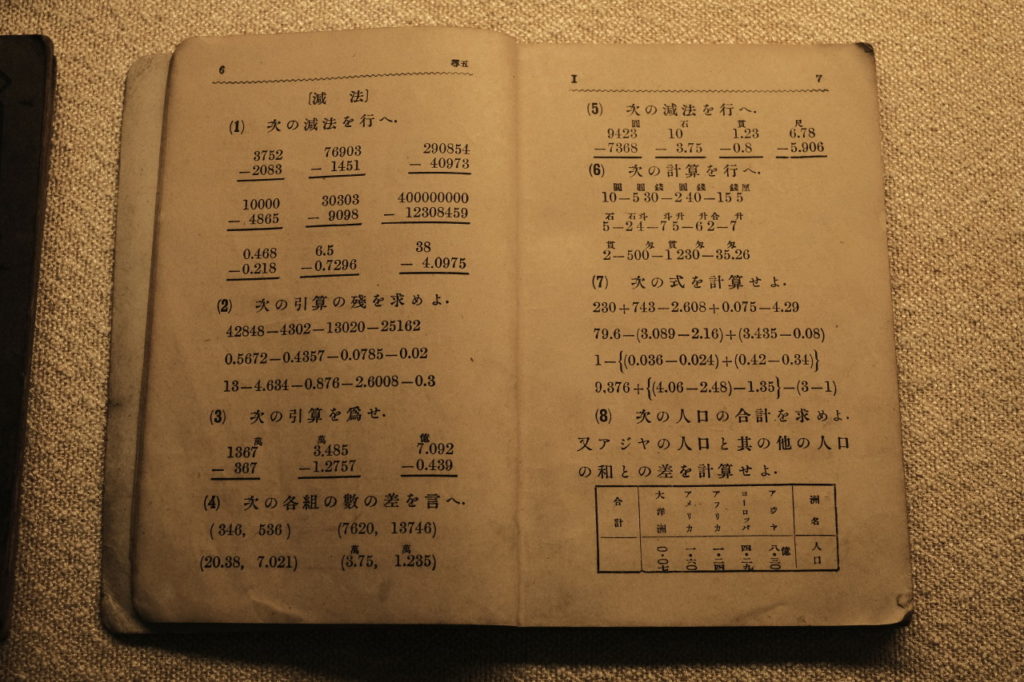 6 尋五
[減 法]
(1) 次の減法を行へ.
3752 76903 290854
−2083 − 1451 − 40973
10000 30303 400000000
− 4865 − 9098 − 12308459
0.468 6.5 38
−0.218 −0.7296 − 4.0975
(2) 次の引算の殘を求めよ.
42848−4302−13020−25162
0.5672−0.4357−0.0785−0.02
13−4.634−0.876−2.6008−0.3
(3) 次の引算を爲せ.
萬 萬 億
1367 3.485 7.092
− 367 −1.2757 −0.439
(4) 次の各組の數の差を言へ.
(346, 536) (7620, 13746)
萬 萬
(20.38, 7.021) (3.75, 1.235)
I 7
(5) 次の減法を行へ.
圓 石 貫 尺
9423 10 1.23 6.78
−7368 − 3.75 −0.8 −5.906
(6) 次の計算を行へ.
圓 圓 錢 圓 錢 錢 厘
10−5 30−2 40−15 5
石 石斗 斗升 升合 升
5−2 4−7 5−6 2−7
貫 匁 貫 匁 匁
2−500−1 230−35.26
(7) 次の式を計算せよ.
230+743−2.608+0.075−4.29
79.6−(3.089−2.16)+(3.435−0.08)
1−{(0.036−0.024)+(0.42−0.34)}
9.376+{(4.06−2.48)−1.35}−(3−1)
(8) 次の人口の合計を求めよ.
又アジヤの人口と其の他の人口
の和との差を計算せよ.
洲名
人口
アジヤ
八・三〇億
ヨーロッパ
四・二九
アフリカ
一・二四
アメリカ
一・六〇
大洋洲
〇・〇七
合計